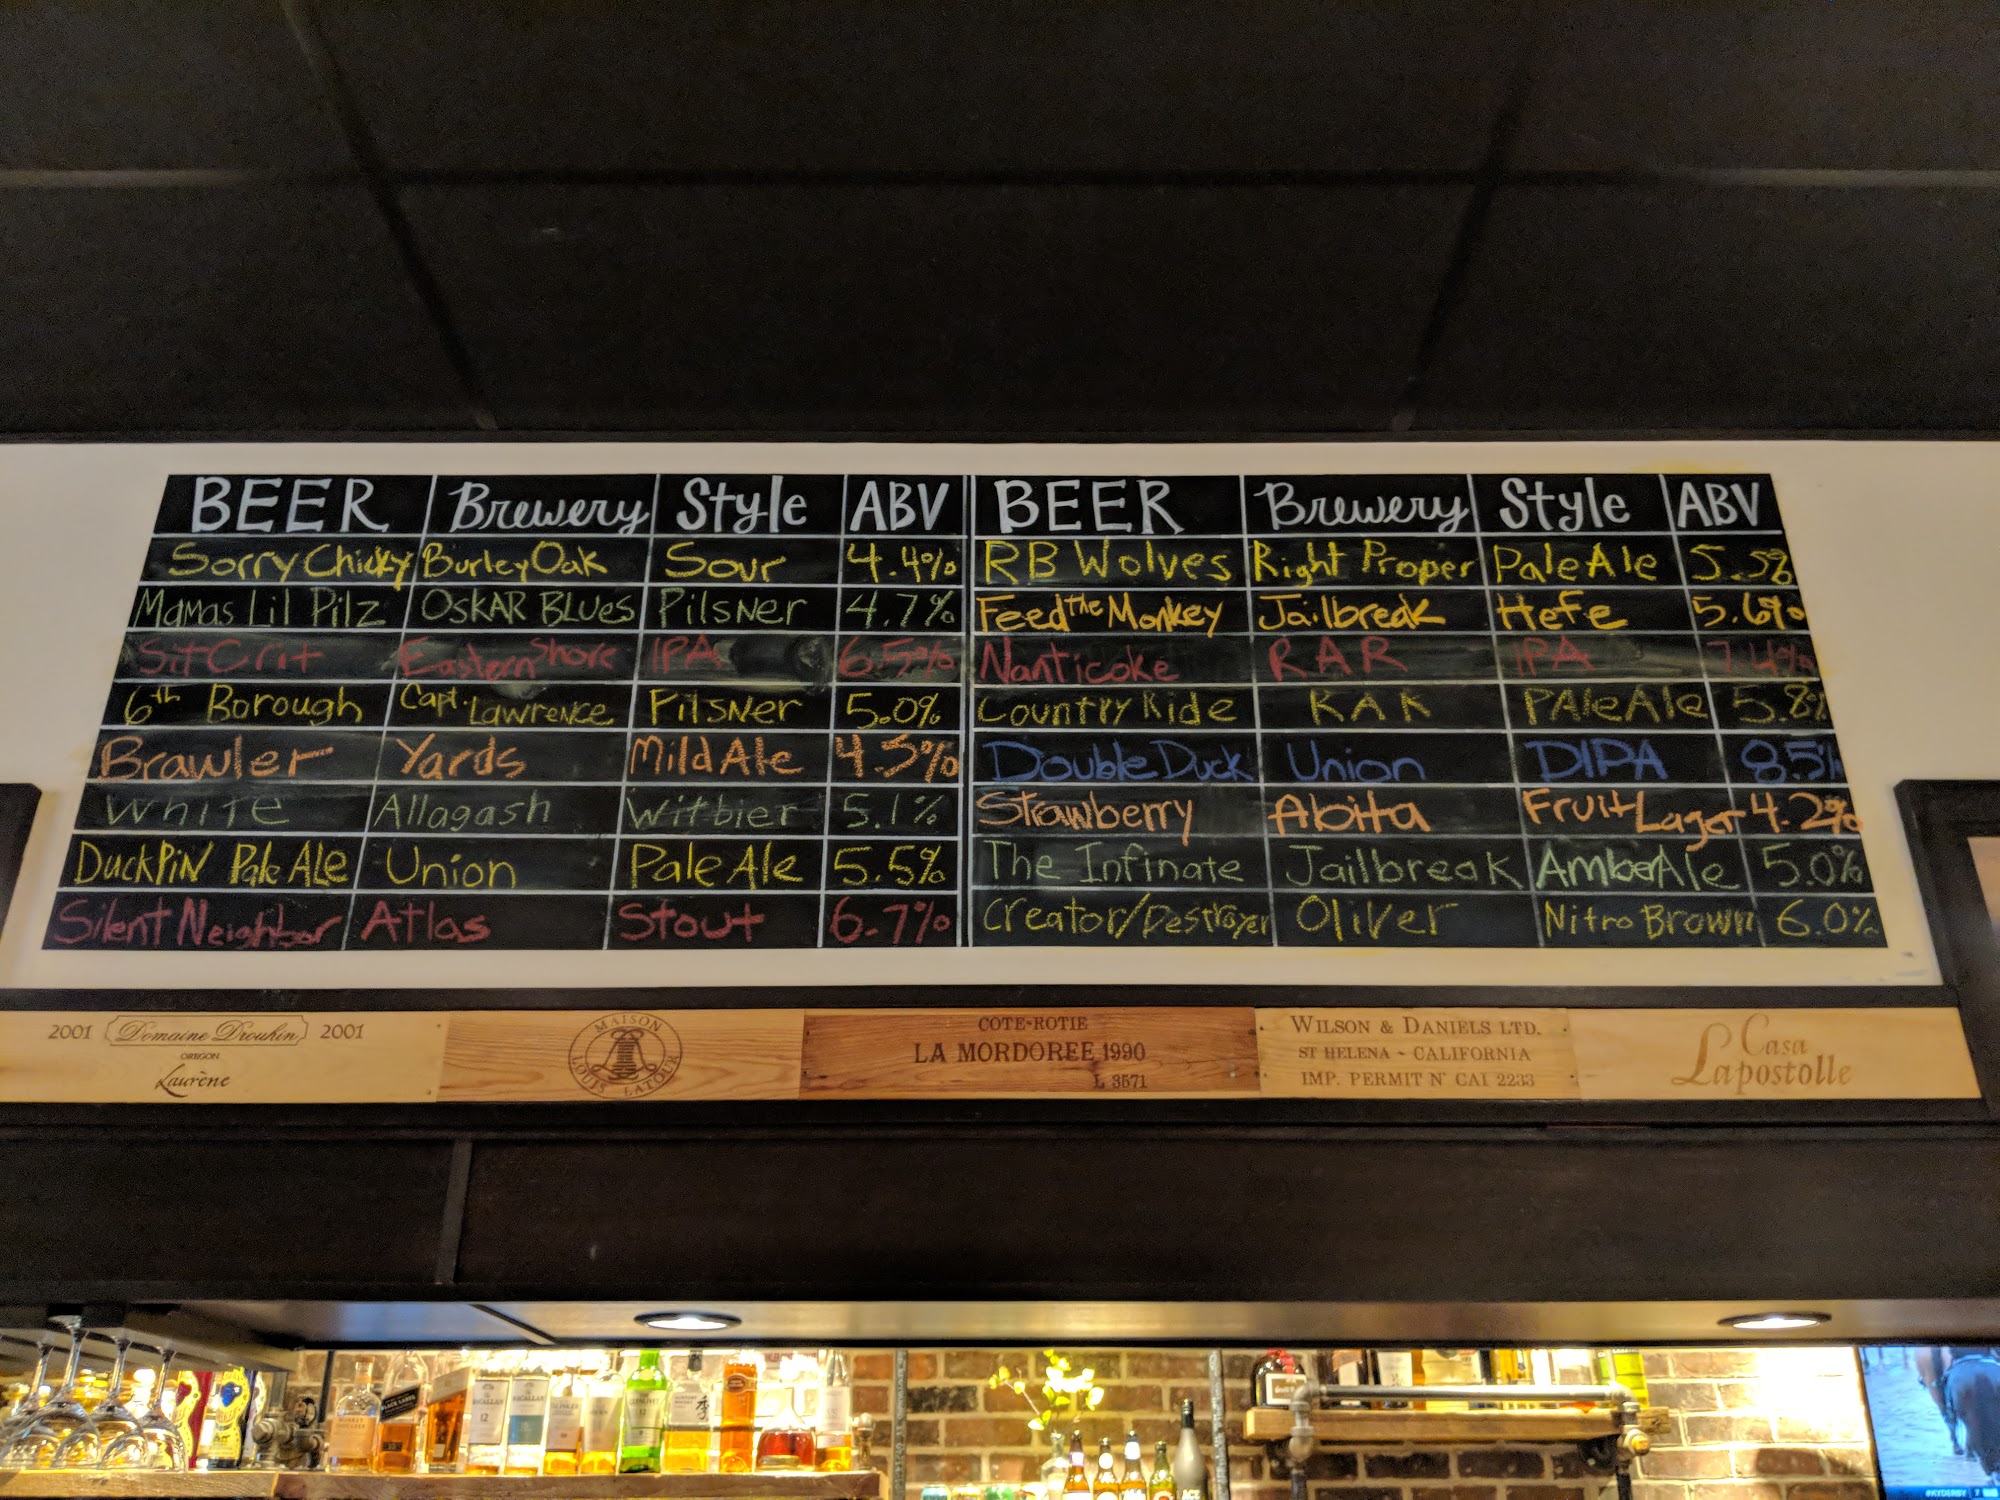 BEER Brewery Style ABV
Sorry Chicky Burley Oak Sour 4.4%
Mamas Lil Pilz OSKAR BLUES Pilsner 4.7%
Sit Crit Eastern Shore IPA 6.5%
6th Borough Capt. Lawrence Pilsner 5.0%
Brawler Yards Mild Ale 4.5%
White Allagash Witbier 5.1%
DuckPiN Pale ALe Union Pale Ale 5.5%
Silent Neighbor Atlas Stout 6.7%
BEER Brewery Style ABV
RB Wolves Right Proper Pale Ale 5.5%
Feed the Monkey Jailbreak Hefe 5.6%
Nanticoke RAR IPA 7.4%
Country Ride RAR PAle Ale 5.8%
Double Duck Union DIPA 8.5%
Strawberry Abita Fruit Lager 4.2%
The Infinate Jailbreak Amber Ale 5.0%
Creator/Destroyer Oliver Nitro Brown 6.0%
2001 Domaine Drouhin 2001
OREGON
Laurène
MAISON
LOUIS LATOUR
COTE-ROTIE
LA MORDOREE 1990
L 3571
WILSON & DANIELS LTD.
ST HELENA - CALIFORNIA
IMP. PERMIT N° CAI 2233
Casa
Lapostolle
#KYDERBY